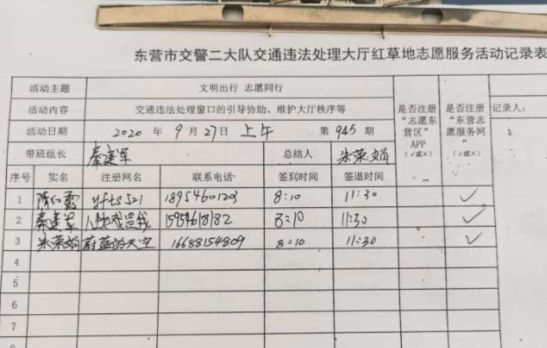 东营市交警二大队交通违法处理大厅红草地志愿服务活动记录表
活动主题 文明出行 志愿同行
活动内容 交通违法处理窗口的引导协助、维护大厅秩序等
是否注册“志愿东营区”APP（√或×）
是否注册“东营志愿服务网”（√或×）
记录人：
活动日期 2020 年 9 月 27日 上午 第 945 期
带班组长 秦建军 总结人 朱荣娟
序号 实名 注册网名 联系电话 签到时间 签退时间
1 yfts521 8:10 11:30 √
2 秦建军 8:10 11:30 √
3 朱荣娟 蔚蓝的天空 16688154809 8:10 11:30 √
4
5
6
7
8